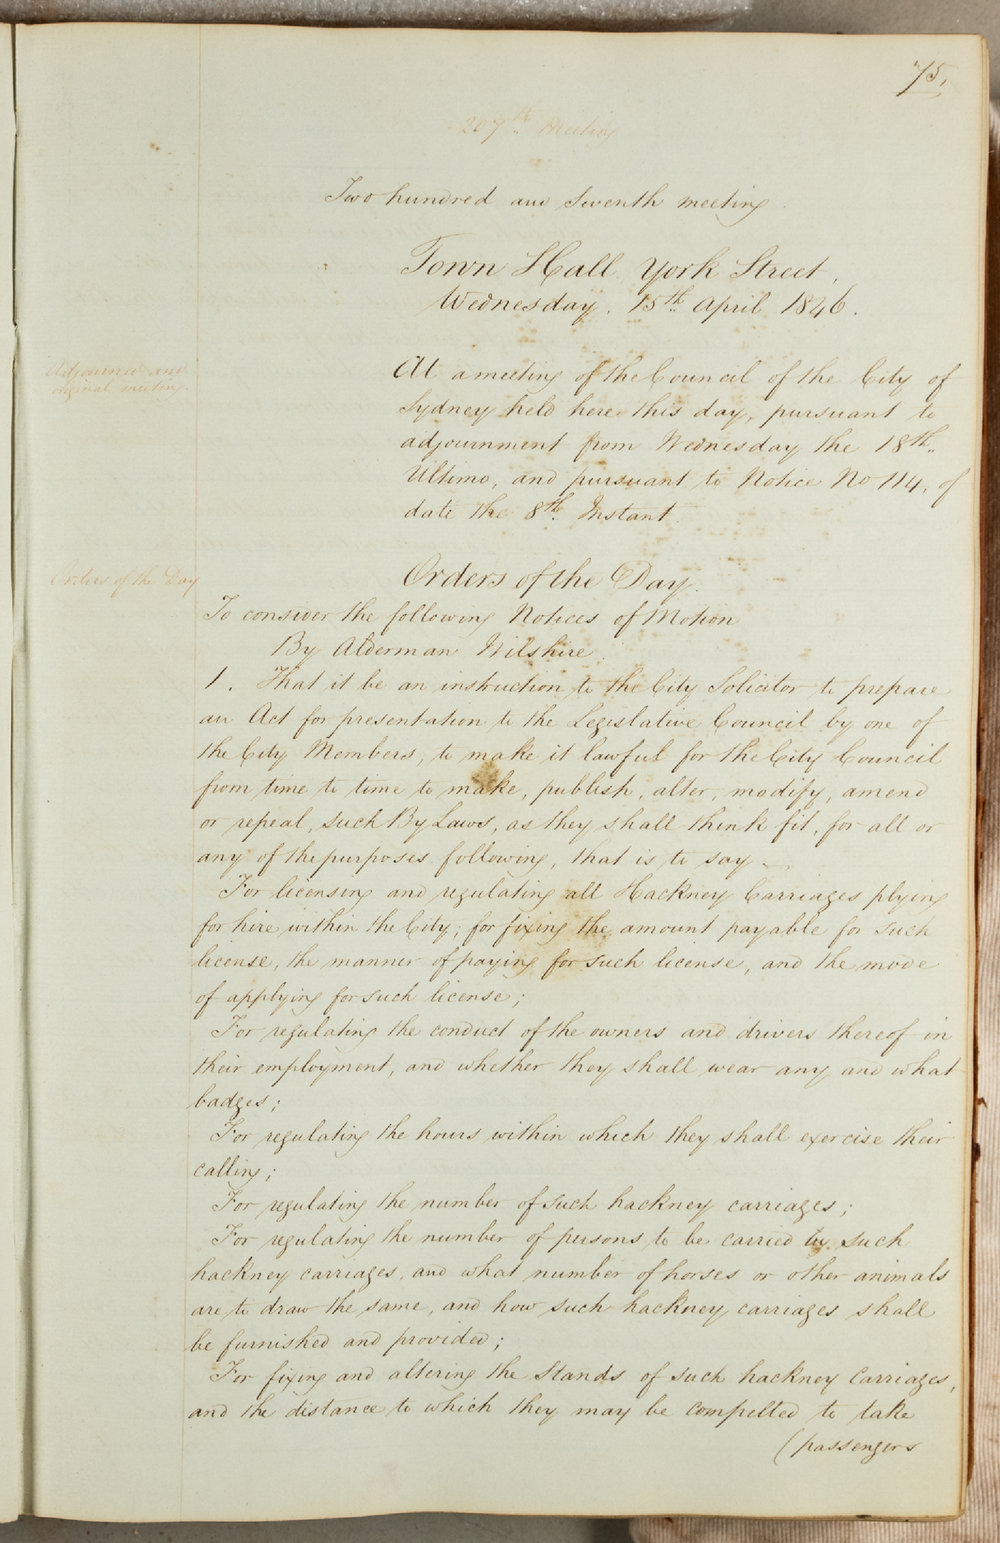 75,
207th Meeting
Two hundred and Seventh meeting
Town Hall York Street,
Wednesday, 15th April 1846.
Adjourned and
original meeting
At a meeting of the Council of the City of
Sydney held here this day, pursuant to
adjournment from Wednesday the 18th
Ultimo, and pursuant to Notice No 114, of
date the 8th Instant.
Orders of the Day
Orders of the Day.
To consider the following Notices of Motion
By Alderman Wilshire.
1. That it be an instruction to the City Solicitor to prepare
an Act for presentation to the Legislative Council by one of
the City Members, to make it lawful for the City Council
from time to time to make, publish, alter, modify, amend
or repeal, such By Laws, as they shall think fit, for all or
any of the purposes following, that is to say —
For licensing and regulating all Hackney Carriages plying
for hire within the City; for fixing the amount payable for such
license, the manner of paying for such license, and the mode
of applying for such license;
For regulating the conduct of the owners and drivers thereof in
their employment, and whether they shall wear any and what
badges;
For regulating the hours within which they shall exercise their
calling;
For regulating the number of such hackney carriages;
For regulating the number of persons to be carried by such
hackney carriages, and what number of horses or other animals
are to draw the same, and how such hackney carriages shall
be furnished and provided;
For fixing and altering the Stands of such hackney Carriages,
and the distance to which they may be compelled to take
(passengers